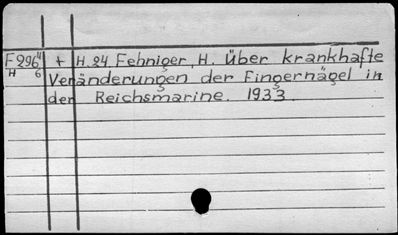 F296⁴ + H.24 Fehniger, H. Über krankhafte
H 6 Veränderungen der Fingernägel in
der Reichsmarine. 1933.